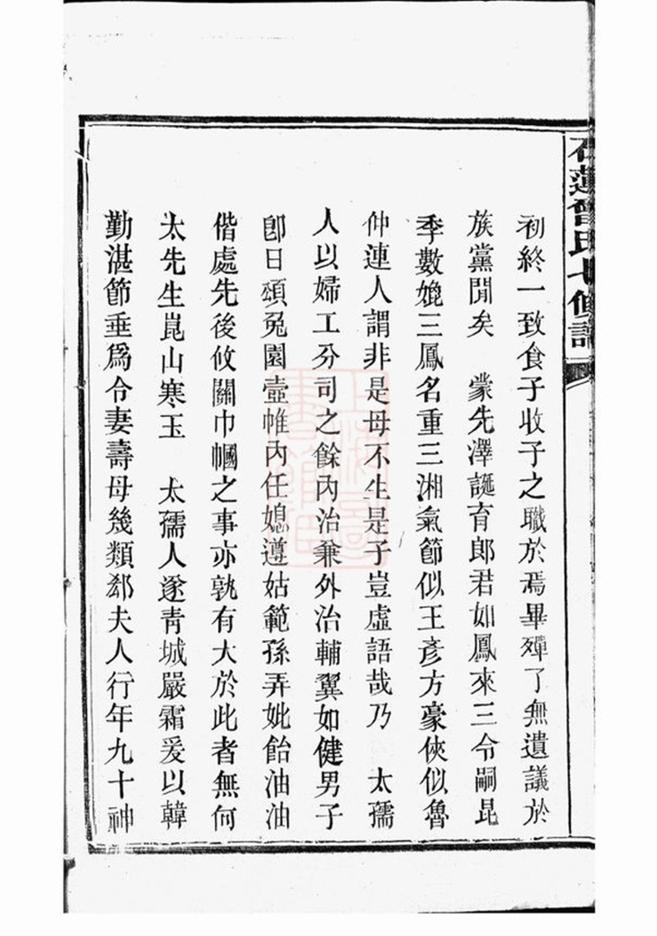 石蓮曾氏七修譜
初終一致食子收子之職於焉畢殫了無遺議於
族黨閒矣　蒙先澤誕育郎君如鳳來三令嗣昆
季數媲三鳳名重三湘氣節似王彥方豪俠似魯
仲連人謂非是母不生是子豈虛語哉乃　太孺
人以婦工分司之餘內治兼外治輔翼如健男子
卽日頌兔園壼帷內任媳遵姑範孫弄妣飴油油
偕處先後攸關巾幗之事亦孰有大於此者無何
太先生崑山寒玉　太孺人遂青城嚴霜爰以韓
勤湛節垂爲令妻壽母幾類郄夫人行年九十神